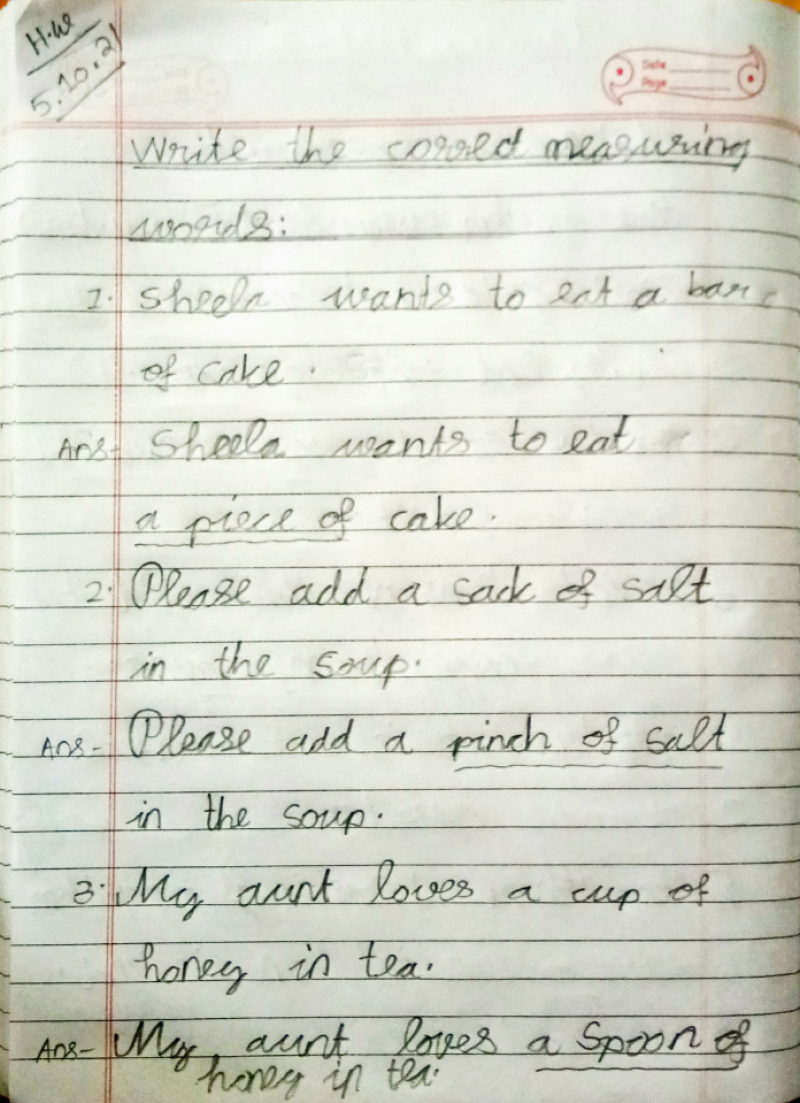 H.W
5.10.21
Date
Page
Write the correct measuring
words:
1. Sheela wants to eat a bar
of cake.
Ans- Sheela wants to eat
a piece of cake.
2. Please add a sack of salt
in the soup.
Ans- Please add a pinch of salt
in the soup.
3. My aunt loves a cup of
honey in tea.
Ans- My aunt loves a spoon of
honey in tea.